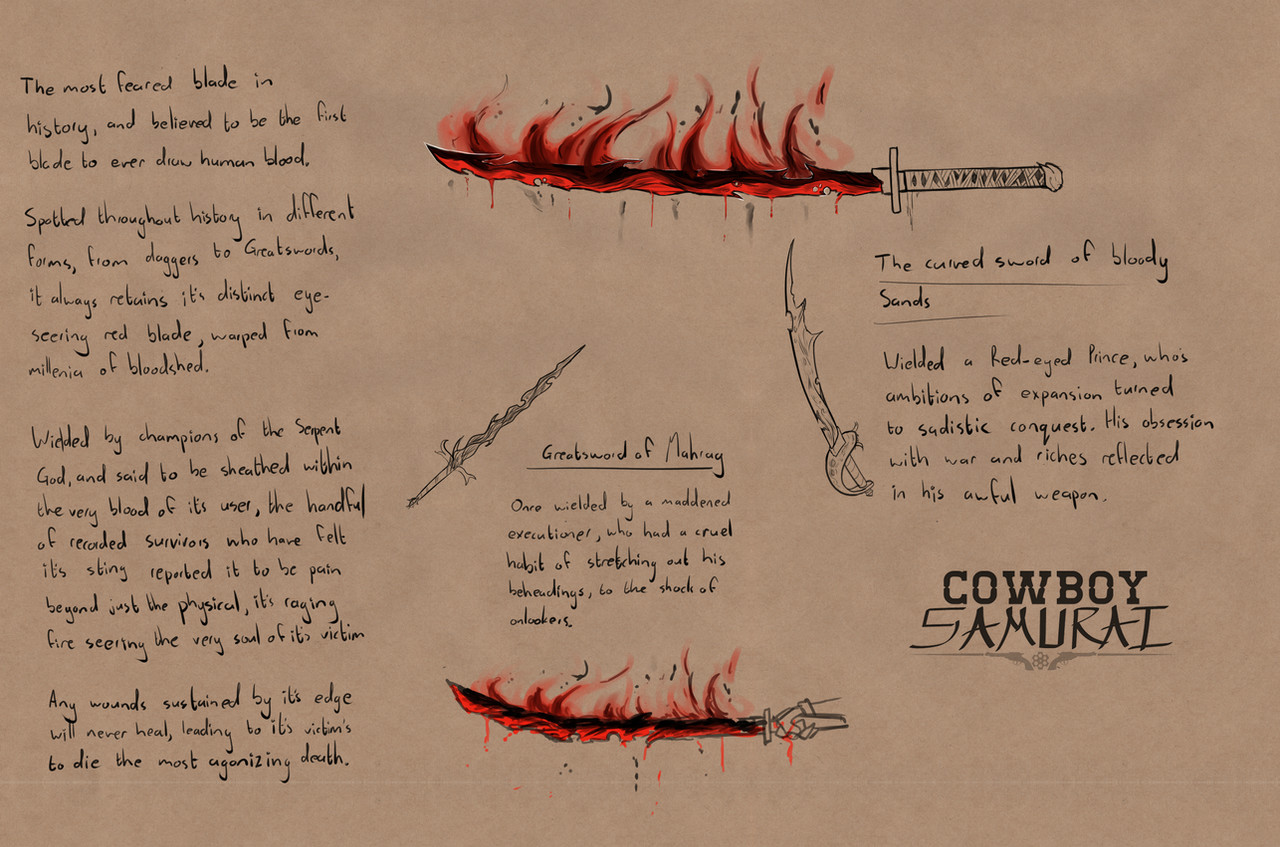 The most feared blade in
history, and believed to be the first
blade to ever draw human blood.
Spotted throughout history in different
forms, from daggers to Greatswords,
it always retains it's distinct eye-
seering red blade, warped from
millenia of bloodshed.
Wielded by champions of the Serpent
God, and said to be sheathed within
the very blood of its user, the handful
of recorded survivors who have felt
it's sting reported it to be pain
beyond just the physical, it's raging
fire seering the very soul of its victim
Any wounds sustained by it's edge
will never heal, leading to it's victim's
to die the most agonizing death.
Greatsword of Mahrag
Once wielded by a maddened
executioner, who had a cruel
habit of stretching out his
beheadings, to the shock of
onlookers.
The curved sword of bloody
Sands
Wielded a Red-eyed Prince, who's
ambitions of expansion turned
to sadistic conquest. His obsession
with war and riches reflected
in his awful weapon.
COWBOY
SAMURAI